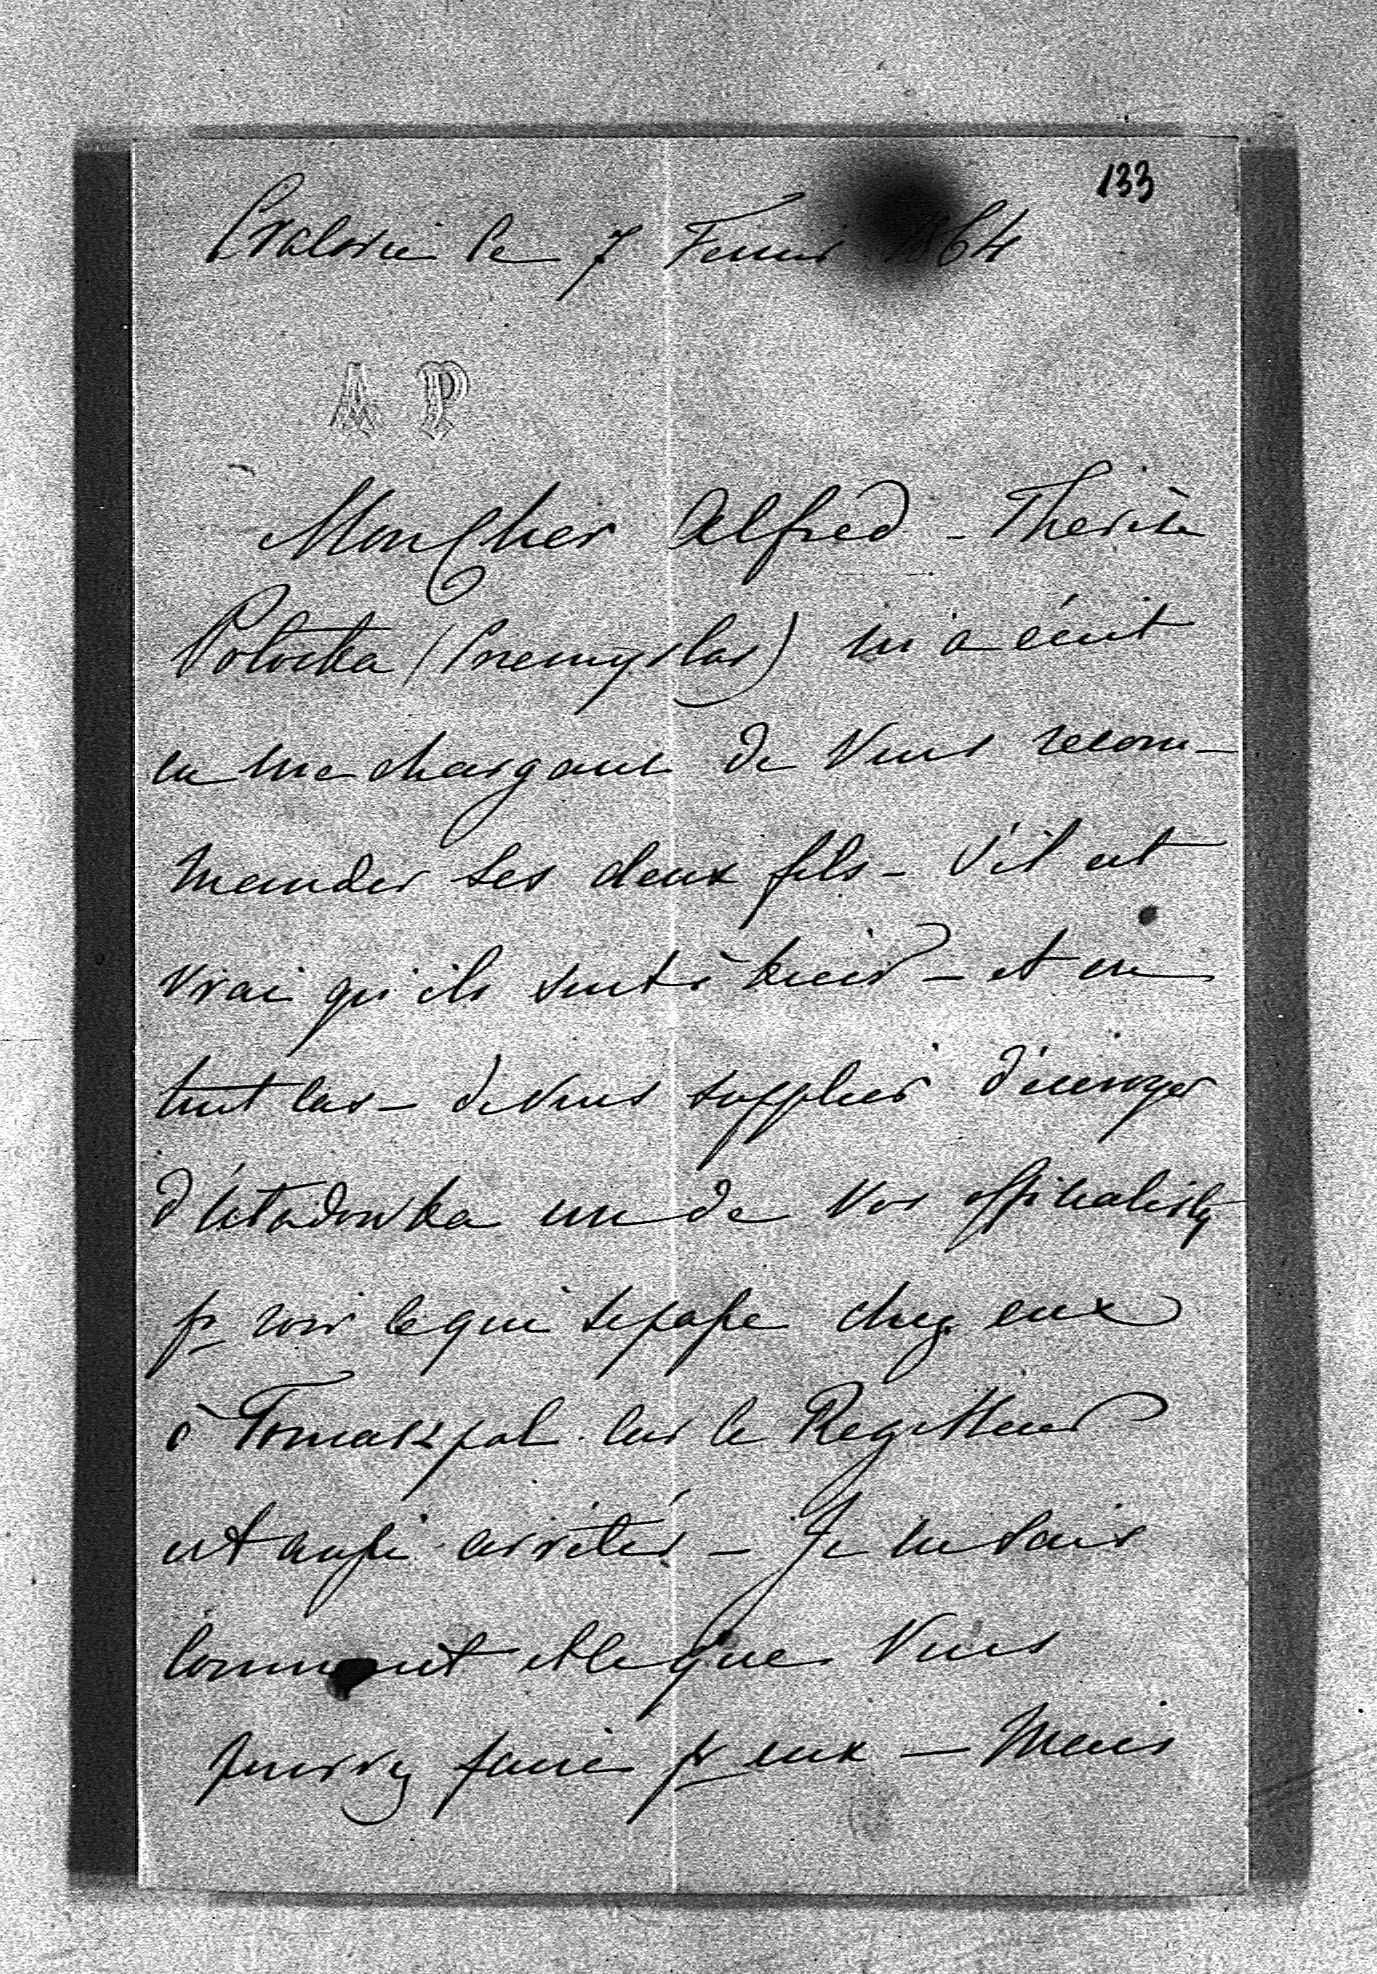 133
Cracovie le 7 Fevrier 1864
A P
Mon Cher Alfred - Therèse
Potocka (Przemyslas) m'a écrit
en me chargant de Vous recom-
mander ses deux fils - S'il est
vrai qu'ils sont à Kiew - et en
tout cas - de Vous supplier d'envoyer
d' un de Vos officialisty
pr voir ce qui se passe chez eux
à Tomaszpol car le Regisseur
est aussi arrêté - Je ne sais
comment et ce que Vous
pourrez faire pr eux - Mais